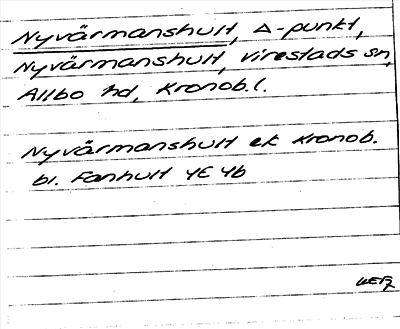 Nyvärmanshult, Δ-punkt,
Nyvärmanshult, Virestads sn,
Allbo hd, Kronob.l.
Nyvärmanshult ek Kronob.
bl. Fanhult 4E 4b